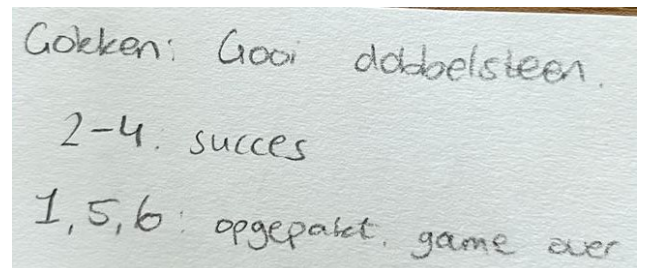 Gokken: Gooi dobbelsteen.
2-4: succes
1,5,6: opgepakt, game over